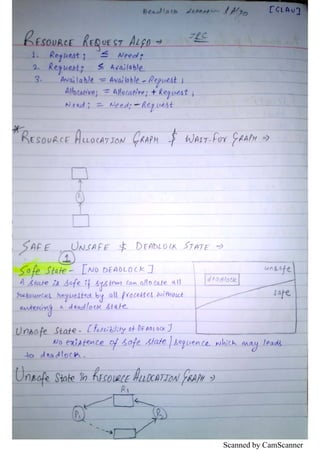 Deadlock [GLAU]
RESOURCE REQUEST ALGO →
1. Request i ≤ Need i
2. Request i ≤ Available
3. Available = Available - Request i
Allocation i = Allocation i + Request i
Need i = Need i - Request i
* RESOURCE ALLOCATION GRAPH & WAIT-FOR GRAPH →
SAFE UNSAFE & DEADLOCK STATE →
1
Safe State - [NO DEADLOCK]
A state is safe if system can allocate all
resources requested by all processes without
entering a deadlock state.
unsafe
deadlock
safe
Unsafe State - [Possibility of DEADLOCK]
No existence of safe state/sequence which may leads
to deadlock.
Unsafe State in RESOURCE ALLOCATION GRAPH →
R1
P1
P2
Scanned by CamScanner